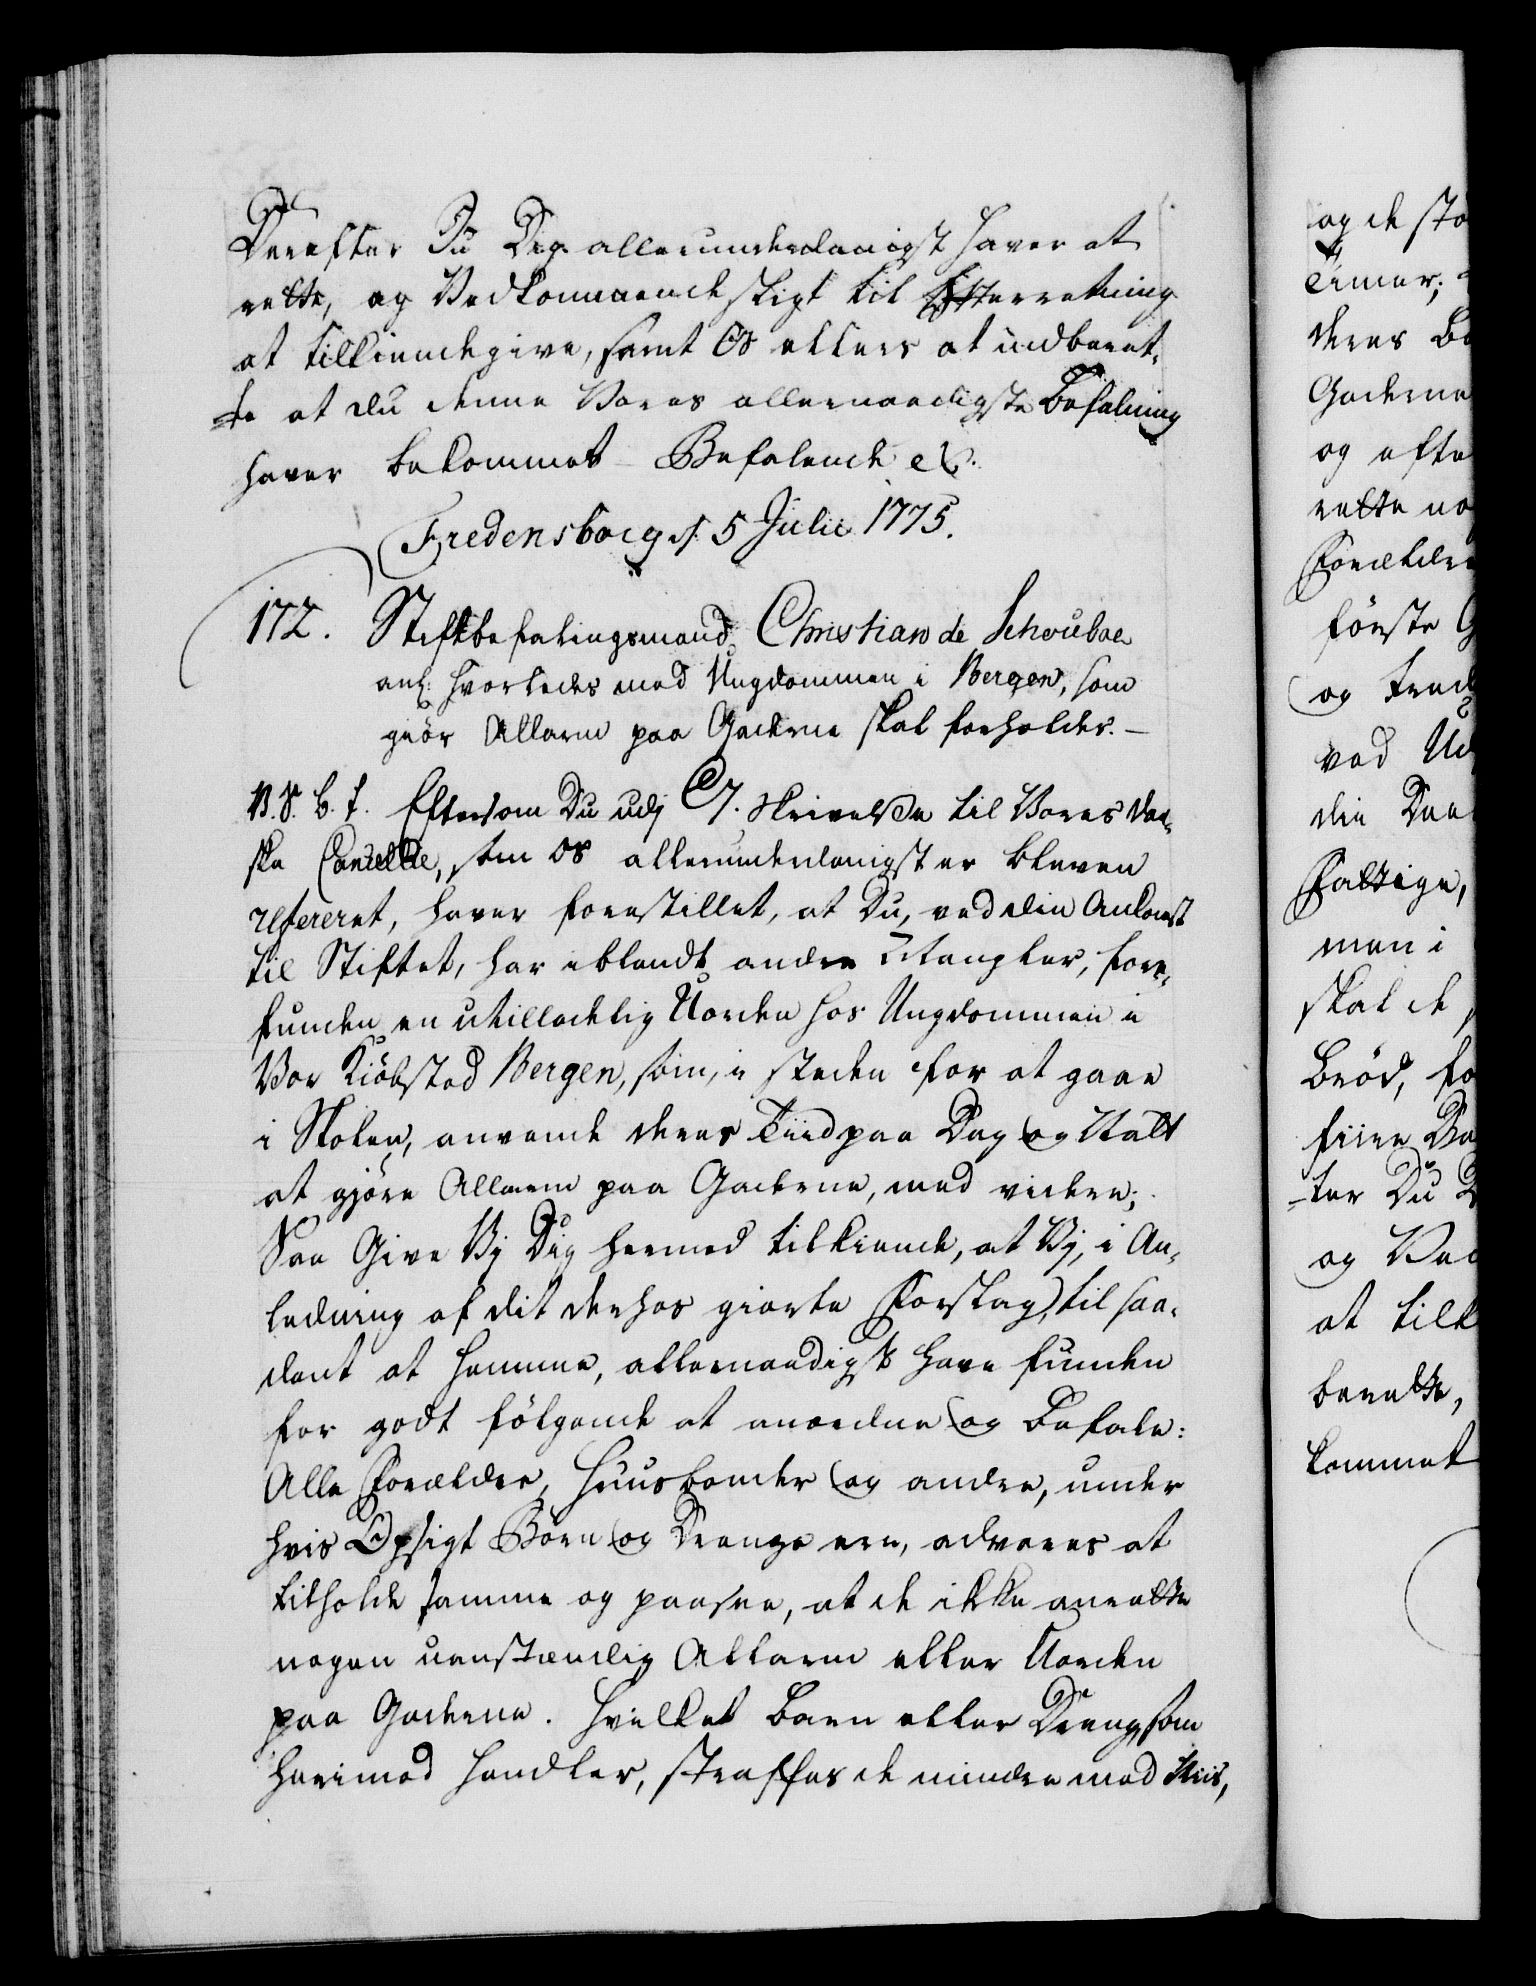 Derefter Du Dig allerunderdanigst haver at
rette, og Vedkommende sligt til Efterretning
at tilkiendegive, samt Os ellers at indberet-
te at du denne Vores allernaadigste Befalning
haver bekommet Befalende etc.
Fredensborg d. 5 Julii 1775.
172. Stiftbefalingsmand Christian de Schouboe
anl: hvorledes med Ungdommen i Bergen, som
giör Allarm paa Gaderne skal forholdes. —
V. S. B. t. Eftersom Du udj Skrivelse til Vores Dan-
ske Cancellie, som Os allerunderdanigst er bleven
refereret, haver forestillet, at Du, ved din Ankomst
til Stiftet, har iblandt andre Mangler, fore-
funden en utilladelig Uorden hos Ungdommen i
Vor Kiöbstad Bergen, som, i steden for at gaae
i Skolen, anvende deres Tiid paa Dag og Natt
at gjöre Allarm paa Gaderne, med videre;
Saa Give Vj Dig hermed tilkiende, at Vj, i An-
ledning af dit derhos giorte Forslag, til saa-
dant at hemme, allernaadigst have funden
for godt fölgende at anordne og befale:
Alle Forældre, Huusbonder og andre, under
hvis Opsigt Börn og Drenge ere, advares at
tilholde samme og paasee, at de ikke anrette
nogen uanstændig Allarm eller Uorden
paa Gaderne. Hvilket Barn eller Dreng, som
herimod handler, straffes de mindre med Riis,
og de sto
Timer;
deres Bo
Gaderne
og efte
rette no
Forældre
förste G
og tred
ved Ud
din Dan
Fattige,
men i
skal de
Bröd, fo
fiire Da
ter Du D
og Ved
at tilk
berette,
kommet